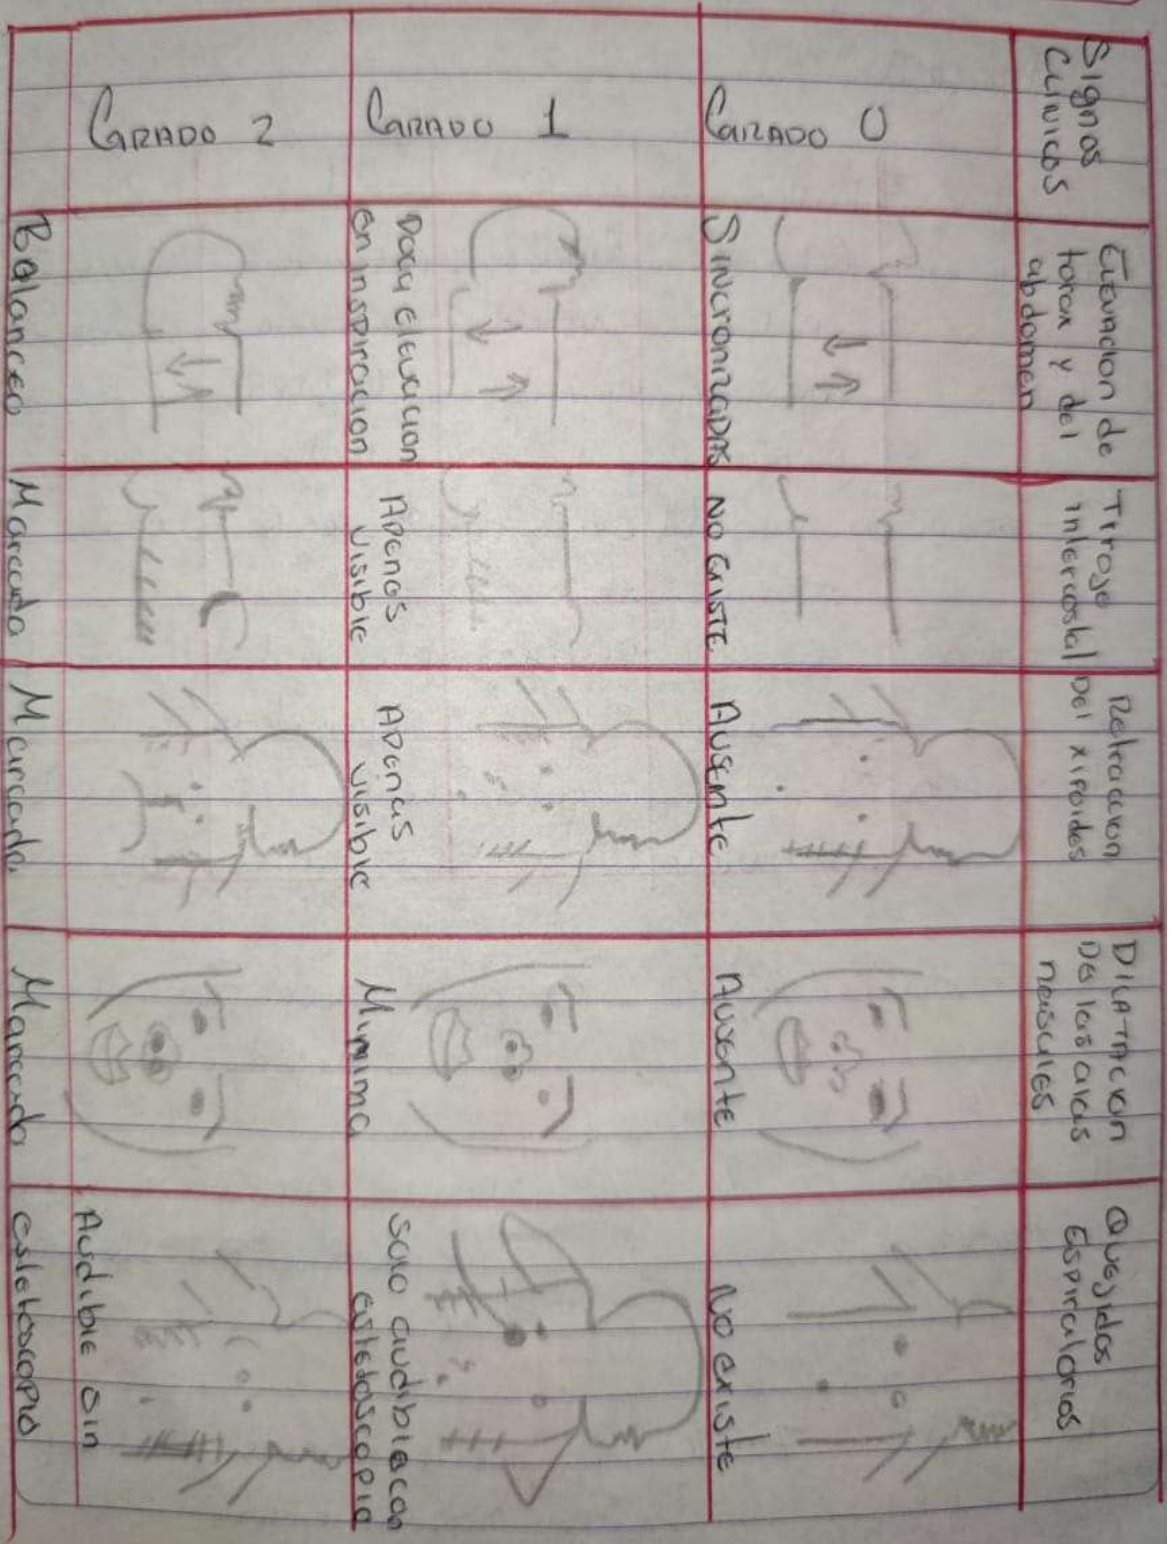 Signos
Clinicos
Elevacion de
torax y del
abdomen
Tiraje
intercostal
Retraccion
Del xifoides
DILATACION
De las alas
nasales
Quejidos
Espiratorios
GRADO 0
SINCRONIZADAS
NO EXISTE
Ausente
Ausente
No existe
GRADO 1
Poca elevacion
en inspiracion
Apenas
visible
Apenas
visible
Minima
Solo audible con
estetoscopio
GRADO 2
Balanceo
Marcado
Marcada
Marcado
Audible sin
estetoscopio